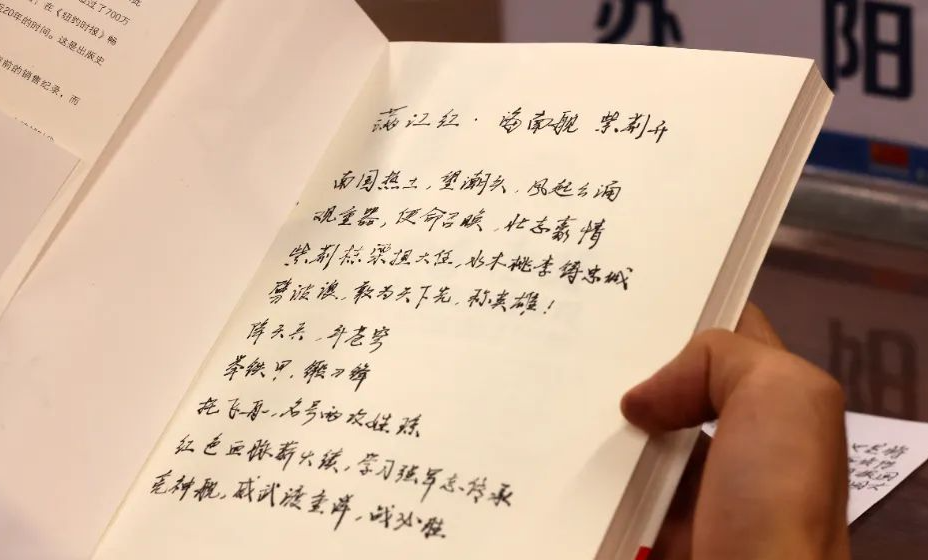 过了700万
在《纽约时报》畅
近20年的时间。这是出版史
前的销售纪录，而
满江红·海南舰 紫荆开
南国热土，望潮头，风起云涌
观重器，使命召唤，壮志豪情
紫荆栋梁担大任，水木桃李铸忠诚
劈波浪，敢为天下先，称英雄！
降天兵，斗苍穹
举铁甲，锻刀锋
托飞舟，名号两次
红色血脉薪火续，学习强军志传承
亮神舰，威武渡重洋，战必胜
办 阳